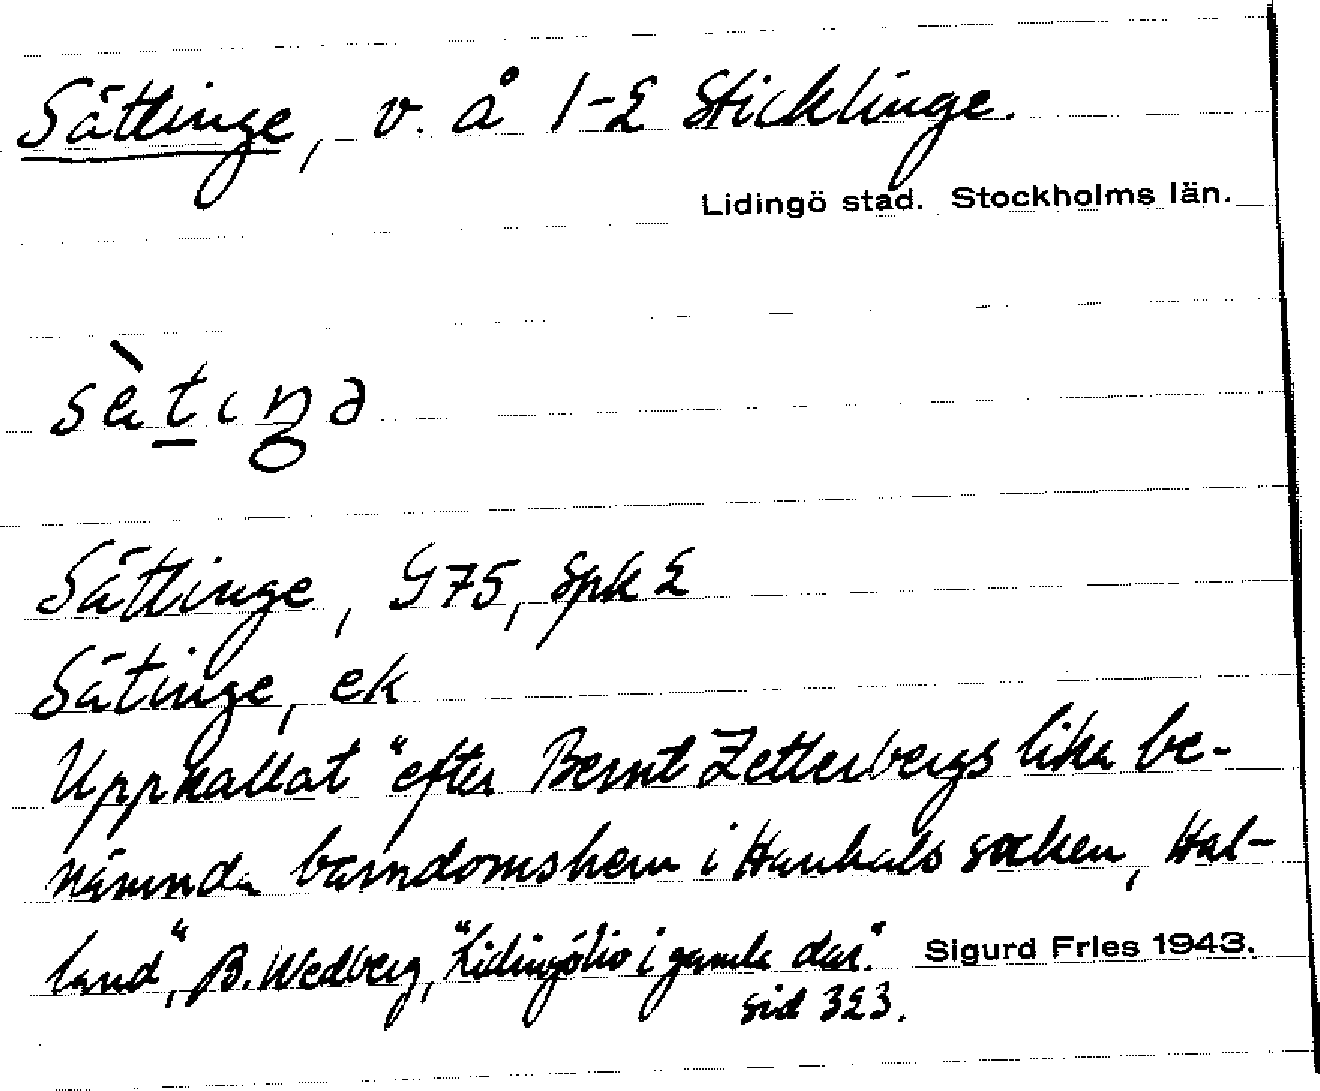 Sättinge, v. å 1-2 Sticklinge.
Lidingö stad. Stockholms län.
sètiŋə
Sättinge, G75, Spk 2
Sätinge, ek
Uppkallat "efter Bernt Zetterbergs lika be-
nämnda barndomshem i Hanhals socken, Hal-
land", B. Wedberg, "Lidingöliv i gamla dar".
Sigurd Fries 1943.
sid 323.